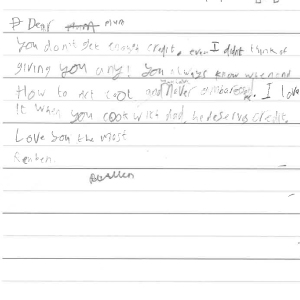 Dear mum
you don't get enough credit. even I didnt think of
giving you any! you always know when and
How to act cool and never embarass me. I love
It when you cook with dad. he deserves credit.
Love you the most